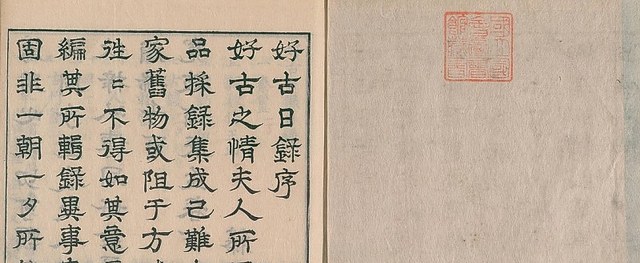 好古日録序
好古之情夫人所
品採録集成己難
家舊物或阻于方
徃〻不得如其意
編其所輯録異事
固非一朝一夕所